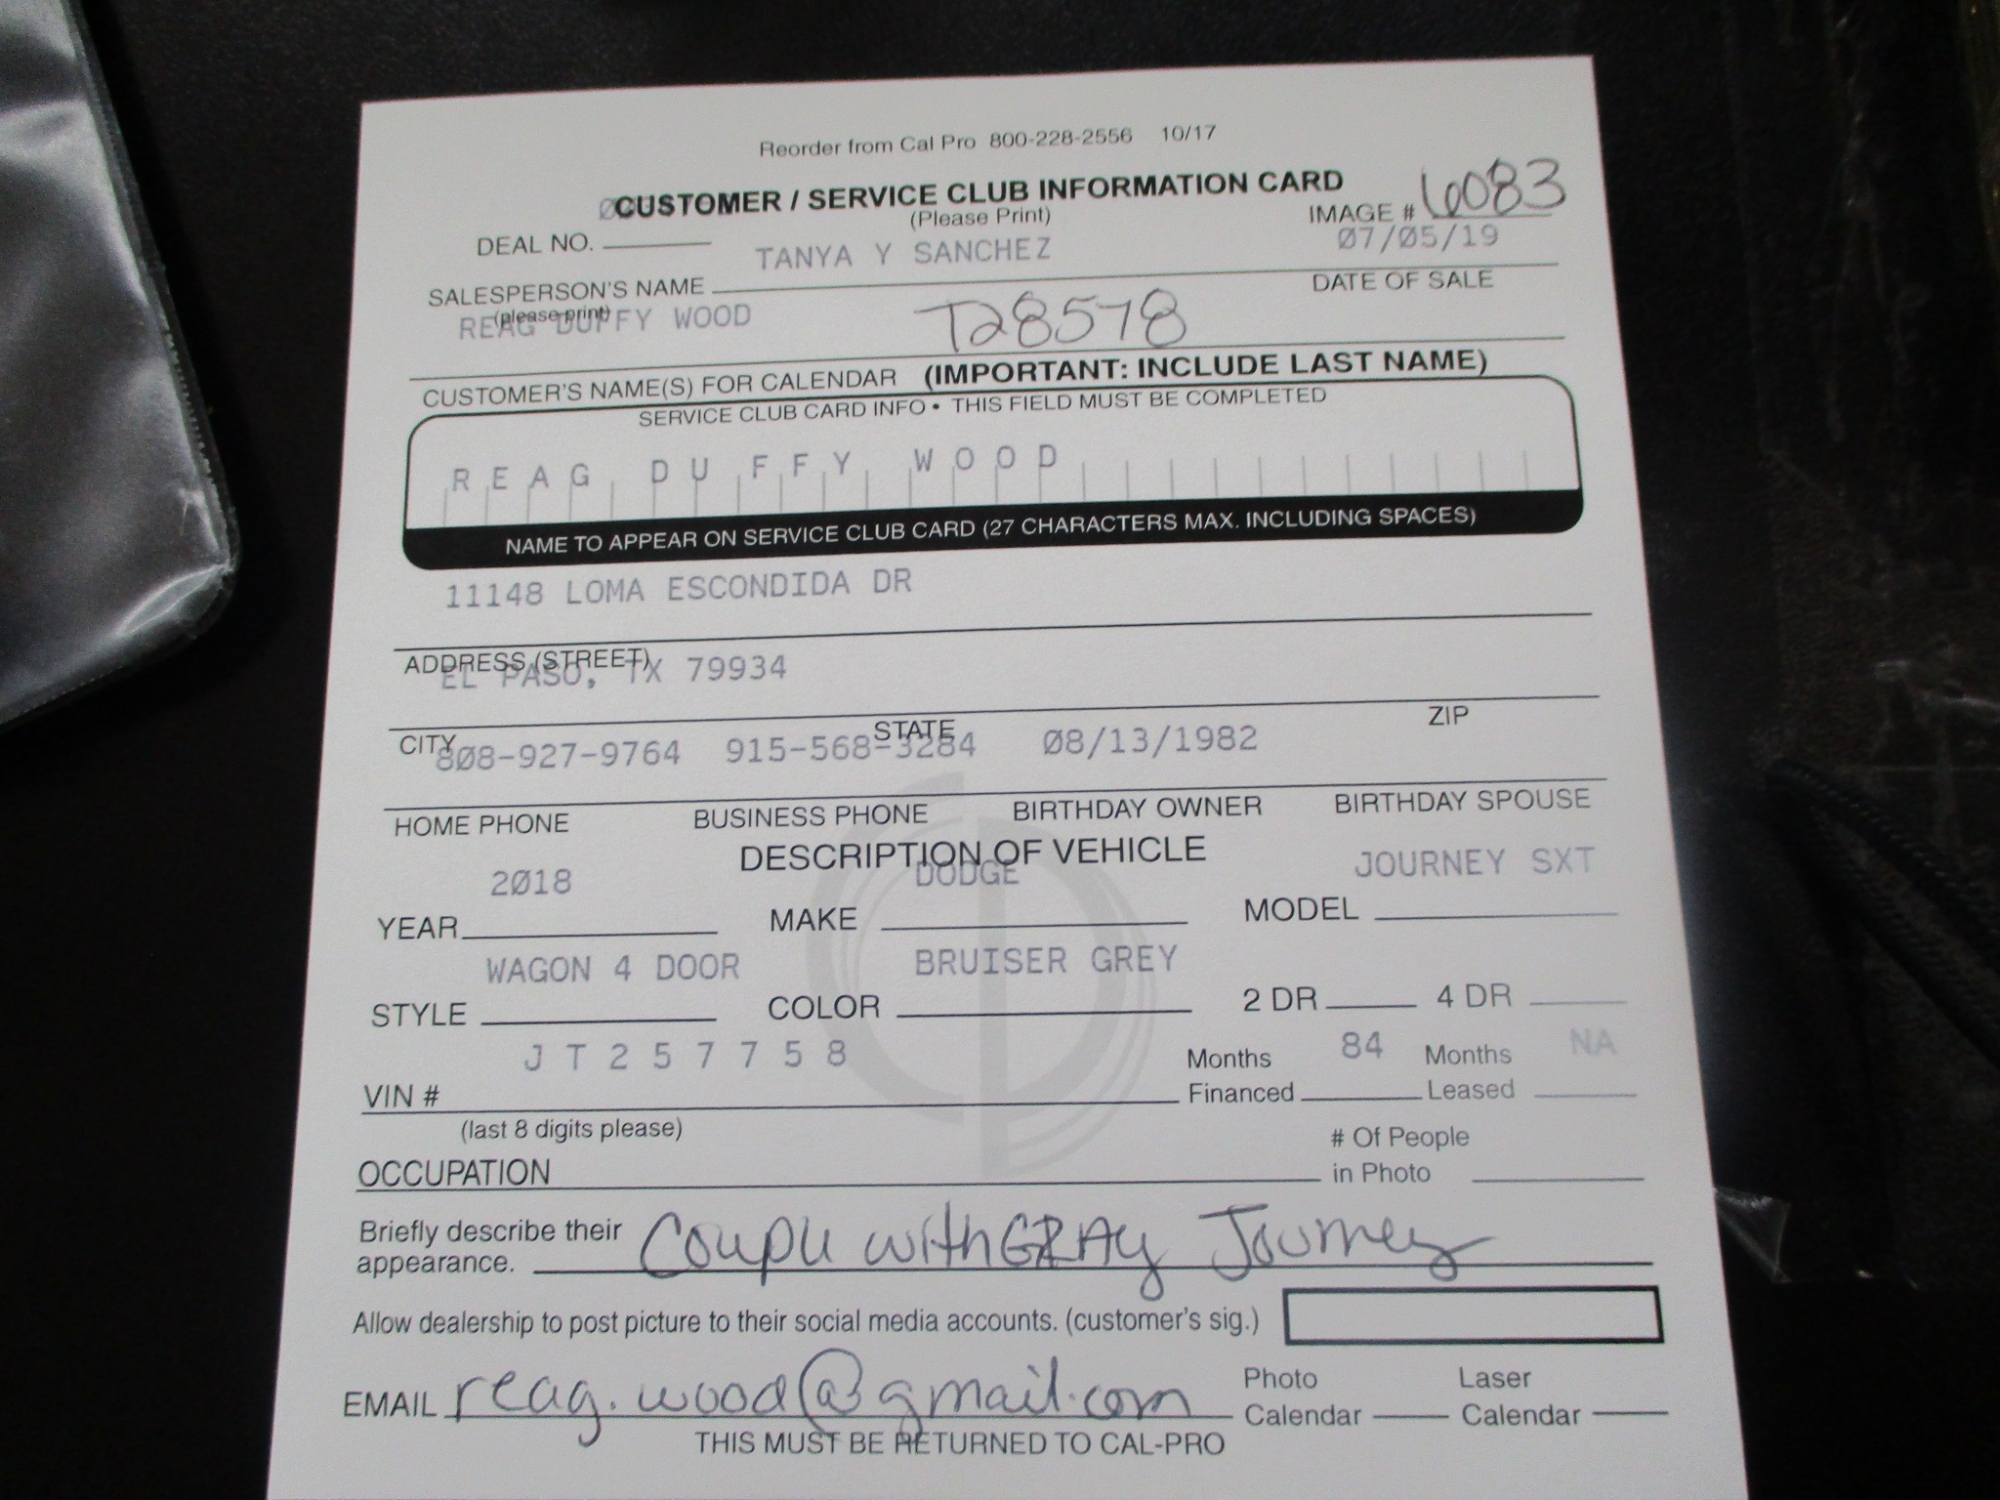 Reorder from Cal Pro 800-228-2556 10/17
CUSTOMER / SERVICE CLUB INFORMATION CARD
(Please Print)
IMAGE # 6083
DEAL NO.
TANYA Y SANCHEZ
07/05/19
SALESPERSON'S NAME
DATE OF SALE
(please print)
REAG DUFFY WOOD
T28578
CUSTOMER'S NAME(S) FOR CALENDAR (IMPORTANT: INCLUDE LAST NAME)
SERVICE CLUB CARD INFO • THIS FIELD MUST BE COMPLETED
REAG DUFFY WOOD
NAME TO APPEAR ON SERVICE CLUB CARD (27 CHARACTERS MAX. INCLUDING SPACES)
11148 LOMA ESCONDIDA DR
ADDRESS (STREET)
EL PASO, TX 79934
CITY STATE ZIP
808-927-9764 915-568-3284 08/13/1982
HOME PHONE BUSINESS PHONE BIRTHDAY OWNER BIRTHDAY SPOUSE
DESCRIPTION OF VEHICLE
2018 DODGE JOURNEY SXT
YEAR MAKE MODEL
WAGON 4 DOOR BRUISER GREY
STYLE COLOR 2 DR 4 DR
J T 2 5 7 7 5 8
Months Financed 84 Months Leased NA
VIN #
(last 8 digits please)
# Of People in Photo
OCCUPATION
Briefly describe their appearance. Couple with GRAy Journey
Allow dealership to post picture to their social media accounts. (customer's sig.)
EMAIL reag.wood@gmail.com
Photo Calendar Laser Calendar
THIS MUST BE RETURNED TO CAL-PRO